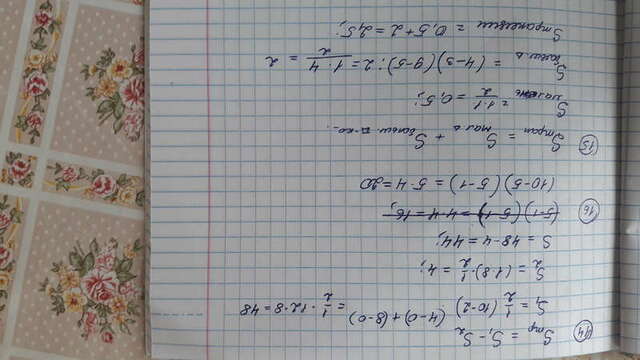 14) Sтр = S₁ - S₂
S₁ = 1/2 (10-2) (4-0)+(8-0) = 1/2 · 12·8 = 48
S₂ = (1·8)·1/2 = 4;
S = 48-4 = 44;
16) (5-1)(5-1) = 4·4 = 16;
(10-5)(5-1) = 5·4 = 20
15) Sтрап = Sмал ь + Sбольш
Sмал = 1·1/2 = 0,5;
Sбольш ь = (4-3)(9-5):2 = 1·4/2 = 2
Sтрапеции = 0,5+2 = 2,5;